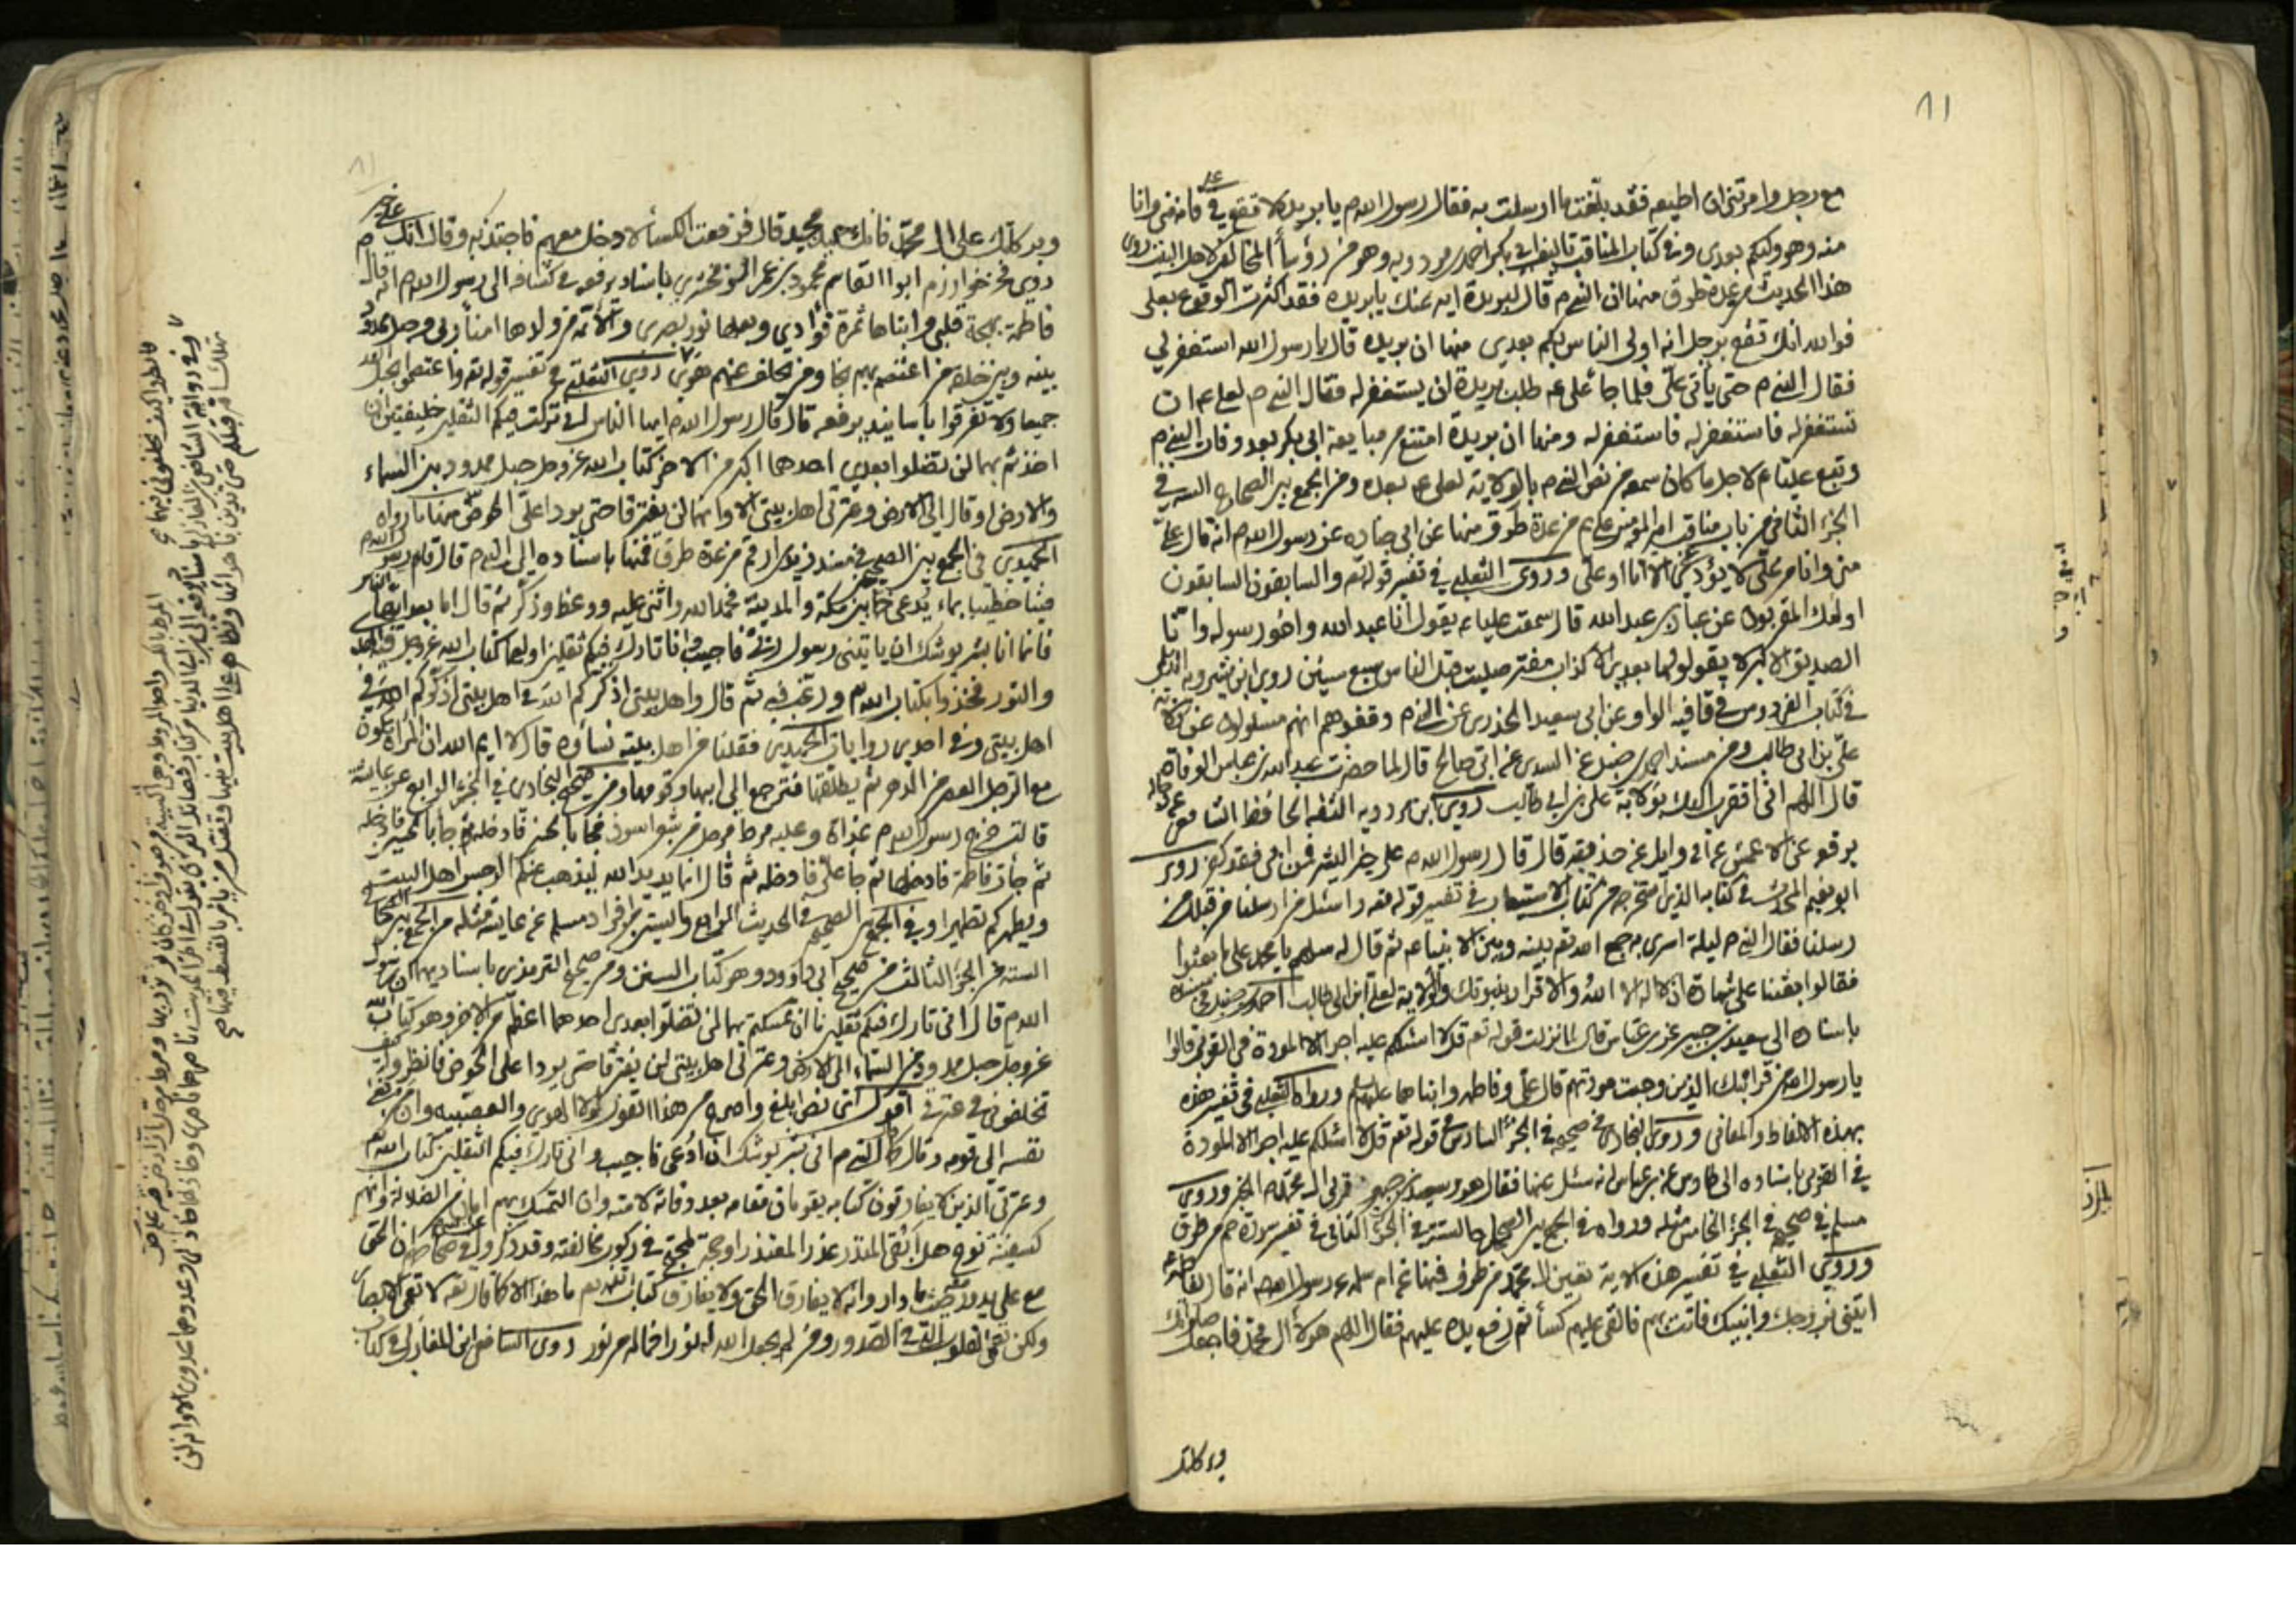 ٨١
مع رجل وامرتني ان اطيعه فقد بلغت ما ارسلت به فقال رسول الله م يا بريدة لا تقع في علي فانه مني وانا
منه وهو وليكم بعدي ومن كتاب المناقب تاليف ابي بكر احمد بن مردويه وهو من رؤساء المخالفين لاهل البيت روى
هذا الحديث من عدة طرق منها ان النبي م قال لبريدة ايه عنك يا بريدة فقد اكثرت الوقوع بعلي
فوالله انك تقع برجل انه اولى الناس بكم بعدي منها ان بريدة قال يا رسول الله استغفر لي
فقال النبي م حتى يأتي علي فلما جاء علي عم طلب بريدة ان يستغفر له فقال النبي م لعلي عم ان
تستغفر له فاستغفر له فاستغفر له ومنها ان بريدة امتنع من مبايعة ابي بكر بعد وفات النبي م
وتبع عليا عم لاجل ما كان سمعه من نص النبي م بالولاية لعلي عم بعده ومن الجمع بين الصحاح الستة في
الجزء الثاني من باب مناقب امير المؤمنين علي عم من عدة طرق منها عن ابي جناده عن رسول الله م انه قال علي
مني وانا من علي لا يؤدي عني الا انا او علي وروى الثعلبي في تفسير قوله تع والسابقون السابقون
اولئك المقربون عن عباد بن عبد الله قال سمعت عليا عم يقول انا عبد الله واخو رسوله وانا
الصديق الاكبر لا يقولها بعدي الا كذاب مفتر صليت قبل الناس سبع سنين روى ابن شيرويه الديلمي
في كتاب الفردوس في قافية الواو عن ابي سعيد الخدري عن النبي م وقفوهم انهم مسئولون عن ولاية
علي بن ابي طالب ومن مسند احمد بن حنبل عن السدي عن ابي صالح قال لما حضرت عبد الله بن عباس الوفاة
قال اللهم اني اتقرب اليك بولاية علي بن ابي طالب روى ابن مردويه الثقة الحافظ
يرفعه عن الاعمش عن ابي وايل عن حذيفة قال قال رسول الله م علي خير البشر فمن ابى فقد كفر روى
ابو نعيم المحدث في كتابه الذي استخرجه من كتاب الاستيعاب في تفسير قوله تع واسئل من ارسلنا من قبلك من
رسلنا فقال النبي م ليلة اسري به جمع الله تع بينه وبين الانبياء ثم قال له سلهم يا محمد على ما بعثوا
فقالوا بعثنا على شهادة ان لا اله الا الله والاقرار بنبوتك والولاية لعلي بن ابي طالب احمد بن حنبل في مسنده
باسناده الى سعيد بن جبير عن ابن عباس قال لما نزلت قوله تع قل لا اسئلكم عليه اجرا الا المودة في القربى قالوا
يا رسول الله من قرابتك الذين وجبت مودتهم قال علي وفاطمة وابناهما عليهم السلم ورواه الثعلبي في تفسير هذه
بهذه الالفاظ والمعاني وروى البخاري في صحيحه في الجزء السادس في قوله تع قل لا اسئلكم عليه اجرا الا المودة
في القربى باسناده الى طاوس عن ابن عباس انه سئل عنها فقال هو وسعيد بن جبير قربى ال محمد الخبر وروى
مسلم في صحيحه في الجزء الخامس مثله ورواه في الجمع بين الصحاح الستة في الجزء الثاني في تفسير سورة حم من طرق
وروى الثعلبي في تفسير هذه الاية تعيين ال محمد من طرق فمنها عن ام سلمة عن رسول الله انه قال لفاطمة
ائتيني بزوجك وابنيك فاتت بهم فالقى عليهم كساء ثم رفع يده عليهم فقال اللهم هولاء ال محمد فاجعل صلواتك
وبركاتك
٨١
وبركاتك على ال محمد فانك حميد مجيد قال فرفعت الكساء لادخل معهم فاجتذبه وقال انك على خير
روى فخر خوارزم ابو القاسم محمود بن عمر الزمخشري باسناد يرفعه في كشافه الى رسول الله م انه قال
فاطمة بهجة قلبي وابناها ثمرة فؤادي وبعلها نور بصري والائمة من ولدها امناء ربي وحبل ممدود
بينه وبين خلقه من اعتصم بهم نجا ومن تخلف عنهم هوى روى الثعلبي في تفسير قوله تع واعتصموا بحبل الله
جميعا ولا تفرقوا باسانيد يرفعه قال قال رسول الله م ايها الناس اني تركت فيكم الثقلين خليفتين ان
اخذتم بهما لن تضلوا بعدي احدهما اكبر من الاخر كتاب الله عز وجل حبل ممدود بين السماء
والارض او قال الى الارض وعترتي اهل بيتي الا وانهما لن يفترقا حتى يردا علي الحوض منها ما رواه
الحميدي في الجمع بين الصحيحين في مسند زيد بن ارقم من عدة طرق فمنها باسناده الى النبي م قال قام رسول الله م
فينا خطيبا بماء يدعى خما بين مكة والمدينة فحمد الله واثنى عليه ووعظ وذكر ثم قال اما بعد ايها الناس
فانما انا بشر يوشك ان ياتيني رسول ربي فاجيب وانا تارك فيكم ثقلين اولهما كتاب الله عز وجل فيه الهدى
والنور فخذوا بكتاب الله ورغب فيه ثم قال واهل بيتي اذكركم الله في اهل بيتي اذكركم الله في
اهل بيتي وفي احدى روايات الحميدي فقلنا من اهل بيته نساؤه قال لا ايم الله ان المراة تكون
مع الرجل العصر من الدهر ثم يطلقها فترجع الى ابيها وقومها ومن صحيح البخاري في الجزء الرابع عن عايشة
قالت خرج رسول الله م غداة وعليه مرط مرحل من شعر اسود فجاء الحسن فادخله ثم جاء الحسين فادخله
ثم جاءت فاطمة فادخلها ثم جاء علي فادخله ثم قال انما يريد الله ليذهب عنكم الرجس اهل البيت
ويطهركم تطهيرا وفي الجمع بين الصحيحين في الحديث الرابع والستين من افراد مسلم عن عايشة مثله من الجمع بين الصحاح
الستة من الجزء الثالث من صحيح ابي داوود وهو كتاب السنن ومن صحيح الترمذي باسناديهما ان رسول
الله م قال اني تارك فيكم ثقلين ما ان تمسكتم بهما لن تضلوا بعدي احدهما اعظم من الاخر وهو كتاب الله
عز وجل حبل ممدود من السماء الى الارض وعترتي اهل بيتي لن يفترقا حتى يردا علي الحوض فانظروا كيف
تخلفوني في عترتي اقول اي نص ابلغ واصرح من هذا القول لولا الهوى والعصبية
نفسه الى قومه وقال النبي م اني بشر يوشك ان ادعى فاجيب واني تارك فيكم الثقلين كتاب الله
وعترتي الذين لا يفارقون كتابه يقومان مقامه بعد وفاته لامته وان التمسك بهم امان من الضلالة وانهم
كسفينة نوح هل ابقى المنذر عذرا لمعتذر او حجة لمحتج في ركوب مخالفته وقد ذكروا في صحاحهم ان الحق
مع علي يدور حيث ما دار وانه لا يفارق الحق ولا يفارق كتاب الله ما هذا الا كما قال تع لا تعمى الابصار
ولكن تعمى القلوب التي في الصدور ومن لم يجعل الله له نورا فما له من نور روى الشافعي ابن المغازلي في كتاب